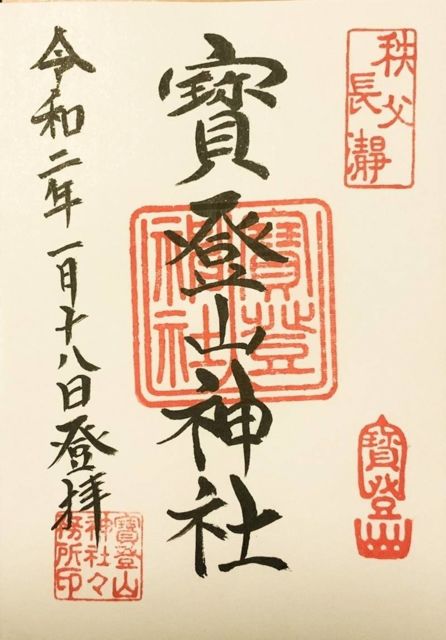 秩父
長瀞
寶登山神社
寶登
神社
寶登山
令和二年一月十八日登拝
寶登山
神社々
務所印